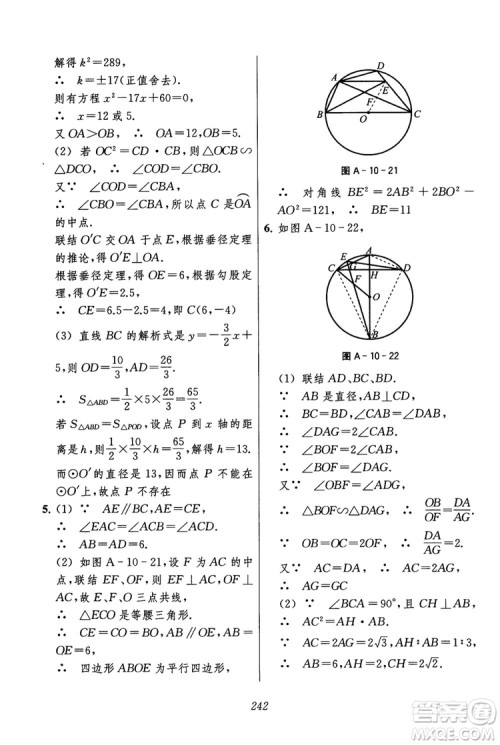 解得 k²=289,
∴ k=±17(正值舍去).
则有方程 x²-17x-60=0,
∴ x=12 或 5.
又 OA>OB, ∴ OB=5.
(2) 若 OC²=CD·CB, 则△OCB∽
△DCO, ∴ ∠COD=∠CBO.
又∵ ∠COD=∠CBA,
∴ ∠CBO=∠CBA, 所以点 C 是OA
的中点.
联结 O′C 交 OA 于点 E, 根据垂径定理
的推论, 得 O′E⊥OA.
根据垂径定理, 得 OE=6. 根据勾股定
理, 得 O′E=2.5,
∴ CE=6.5-2.5=4, 即 C(6, -4).
(3) 直线 BC 的解析式为 y=-3/2 x
+5, 则 OD=10/3, AD=26/3.
∴ S△ABD=1/2×5×26/3=65/3.
若 S△ABD=S△POD, 设点 P 到 x 轴的距
离是 h, 则 1/2×10/3×h=65/3, 得 h=13.
而⊙O′的直径是 13, 所以点 P 不能在
⊙O′上, 故点 P 不存在
5. (1) ∵ AE∥BC, AE=CE,
∴ ∠EAC=∠ACB=∠ECA.
∴ AB=CE=6.
(2) 如图 A-10-21, 设 F 为 AC 的中
点, 联结 EF、OF, 则 EF⊥AC, OF⊥
AC. 故 E、F、O 三点共线,
∴ △ECO 是等腰三角形.
又∵ CE=AB=6, ∴ BO=CO=
OE=6,
∴ 四边形 ABOE 为平行四边形,
A
D
E
F
B
O
C
图 A-10-21
∴ 对角线 BE²=2AB²+2OB²-
AO²=121, ∴ BE=11
6. 如图 A-10-22,
A
E
G
C
H
D
F
O
B
图 A-10-22
(1) ∵ 联结 AD、BD、BC.
∵ AB 是直径, AB⊥CD,
∴ ∠BCA=∠BDA=90°.
∴ BC=BD.
∴ ∠CAB=∠DAB. 又∵ ∠BOF
=2∠CAB, ∴ ∠BOF=∠CAD.
又∵ ∠OBF=∠ADG,
∴ △BOF∽△DAG, ∴ OB/OF=DA/AG.
∵ OB=OC=2OF, ∴ DA/AG=2.
又∵ AC=DA, ∴ AC=2AG.
(2) ∵ ∠BCA=90°, 且 CH⊥AB,
∴ AC²=AH·AB,
∵ AC=AD=2√3, AH∶AB=1∶3,
∴ AH=2, ∴ CH=2√2.
242